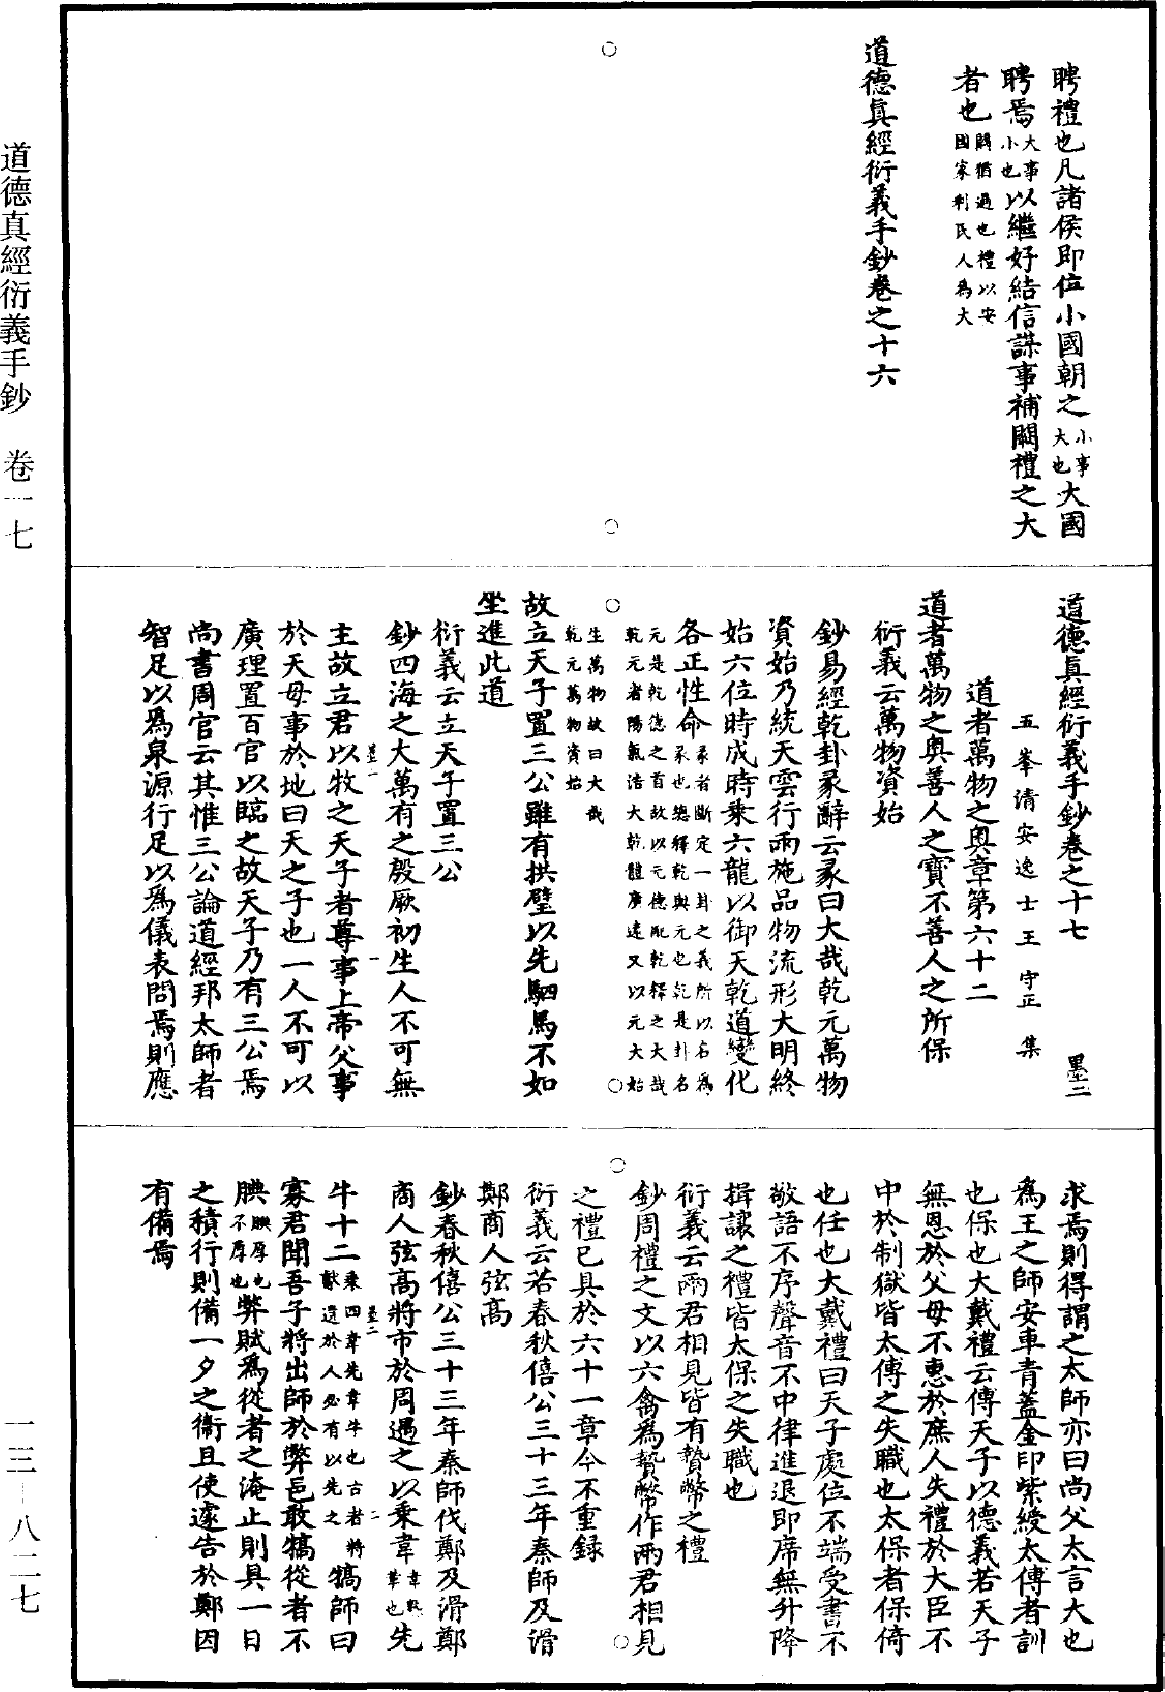 聘禮也凡諸侯即位小國朝之小事大也大國
聘焉大事小也以繼好結信謀事補闕禮之大
者也闕猶過也禮以安國家利民人為大
道德真經衍義手鈔卷之十六
道德真經衍義手鈔卷之十七 墨二
五峯清安逸士王守正集
道者萬物之奧章第六十二
道者萬物之奧善人之寶不善人之所保
衍義云萬物資始
鈔易經乾卦彖辭云彖曰大哉乾元萬物
資始乃統天雲行雨施品物流形大明終
始六位時成時乘六龍以御天乾道變化
各正性命彖者斷定一卦之義所以名為彖也總釋乾與元也乾是卦名
元是乾德之首故以元德配乾釋之大哉乾元者陽氣浩大乾體廣遠又以元大始
生萬物故曰大哉乾元萬物資始
故立天子置三公雖有拱璧以先駟馬不如
坐進此道
衍義云立天子置三公
鈔四海之大萬有之殷厥初生人不可無
墨二 一
主故立君以牧之天子者尊事上帝父事
於天母事於地曰天之子也一人不可以
廣理置百官以臨之故天子乃有三公焉
尚書周官云其惟三公論道經邦太師者
智足以為泉源行足以為儀表問焉則應
求焉則得謂之太師亦曰尚父太言大也
為王之師安車青蓋金印紫綬太傅者訓
也保也大戴禮云傅天子以德義若天子
無恩於父母不惠於庶人失禮於大臣不
中於制獄皆太傅之失職也太保者保倚
也任也大戴禮曰天子處位不端受書不
敬語不序聲音不中律進退即席無升降
揖讓之禮皆太保之失職也
衍義云兩君相見皆有贄幣之禮
鈔周禮之文以六禽為贄幣作兩君相見
之禮已具於六十一章今不重録
衍義云若春秋僖公三十三年秦師及滑
鄭商人弦高
鈔春秋僖公三十三年秦師伐鄭及滑鄭
商人弦高將市於周遇之以乘韋韋熟革也先
墨二 二
牛十二乘四韋先韋牛也古者將獻遺於人必有以先之犒師曰
寡君聞吾子將出師於弊邑敢犒從者不
腆腆厚也不厚也弊賦為從者之淹止則具一日
之積行則備一夕之衞且使遽告於鄭因
有備焉
道德真經衍義手鈔 卷一七
一三－八二七